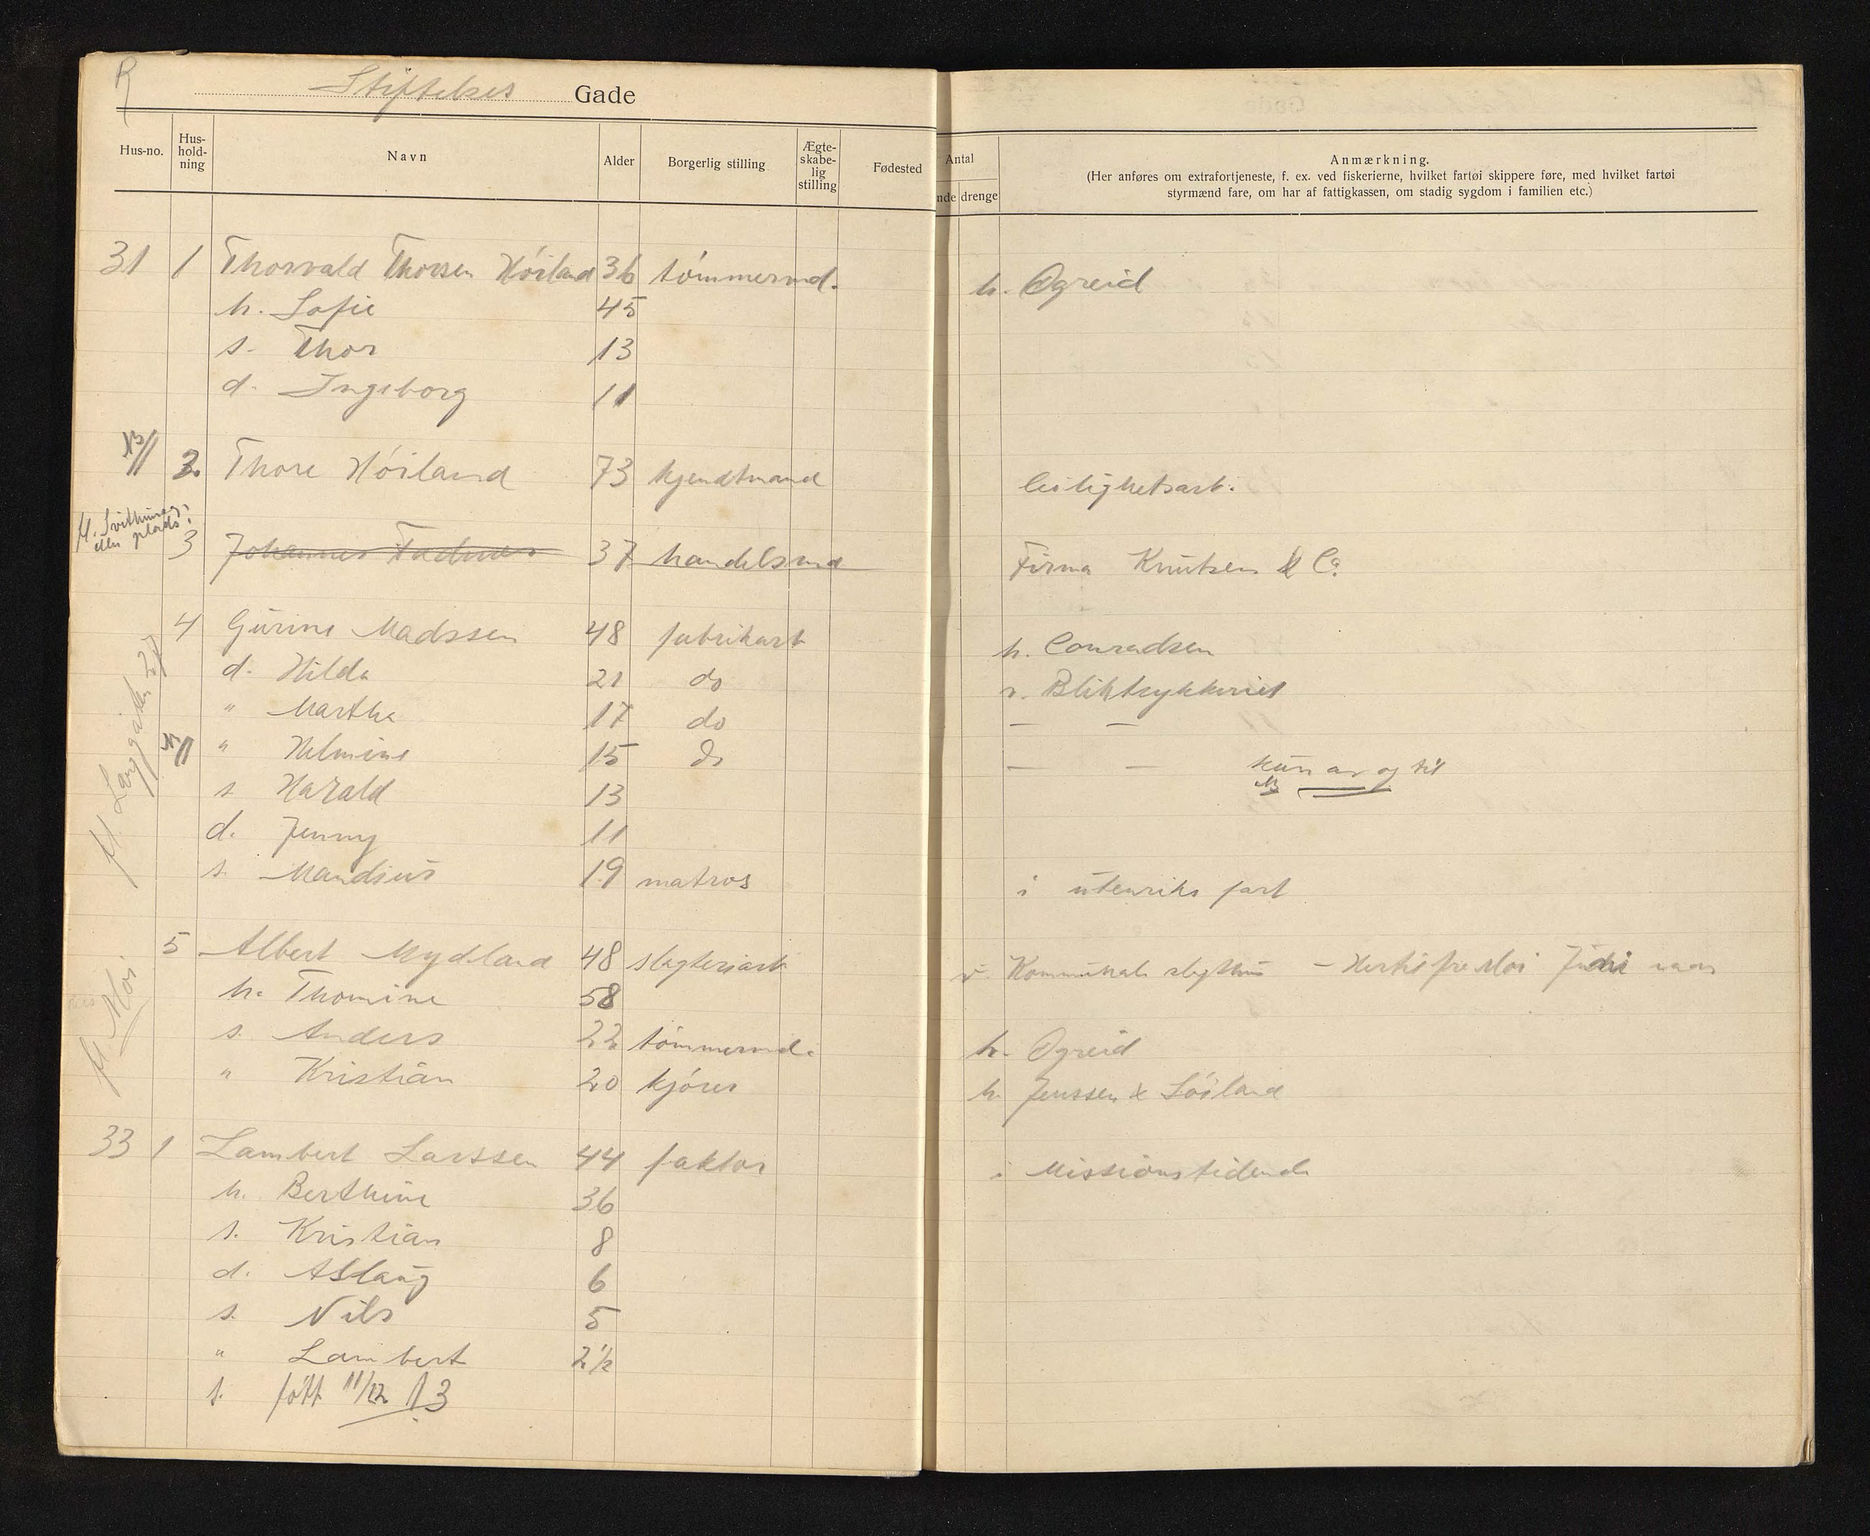 R
Stiftelses Gade
Hus-no. Hus-hold-ning Navn Alder Borgerlig stilling Ægte-skabe-lig stilling Fødested
Antal
nde drenge
Anmærkning.
(Her anføres om extrafortjeneste, f. ex. ved fiskerierne, hvilket fartøi skippere føre, med hvilket fartøi
styrmænd fare, om har af fattigkassen, om stadig sygdom i familien etc.)
31 1 Thorvald Thorsen Höiland 36 tömmermd. h. Ogreid
h. Sofie 45
s. Thor 13
d. Ingeborg 11
2. Thore Höiland 73 kjendtmand leilighetsarb.
fl. Svithuns
eller plads
3 Johannes 37 handelsmd Firma Knutsen & Co.
4 Gurine Madssen 48 fabrikarb h. Conradsen
d. Hilda 21 do v. Bliktrykkeriet
" Martha 17 do — —
" Helmine 15 do — — kun av og til
s Harald 13
d. Jenny 11
s. Mandius 19 matros i utenriks fart
fl Langgaten
5 Albert Mydland 48 slagteriarb v. Kommunale slagthus – fra Moi
h. Thomine 58
s. Anders 22 tömmermd. h. Ogreid
" Kristian 20 kjörer h. Jenssen & Löiland
fl Moi
33 1 Lambert Larssen 44 faktor i Missionstidende
h. Berthine 36
s. Kristian 8
d. Aslaug 6
s. Nils 5
" Lambert 2½
s. født 11/12 13